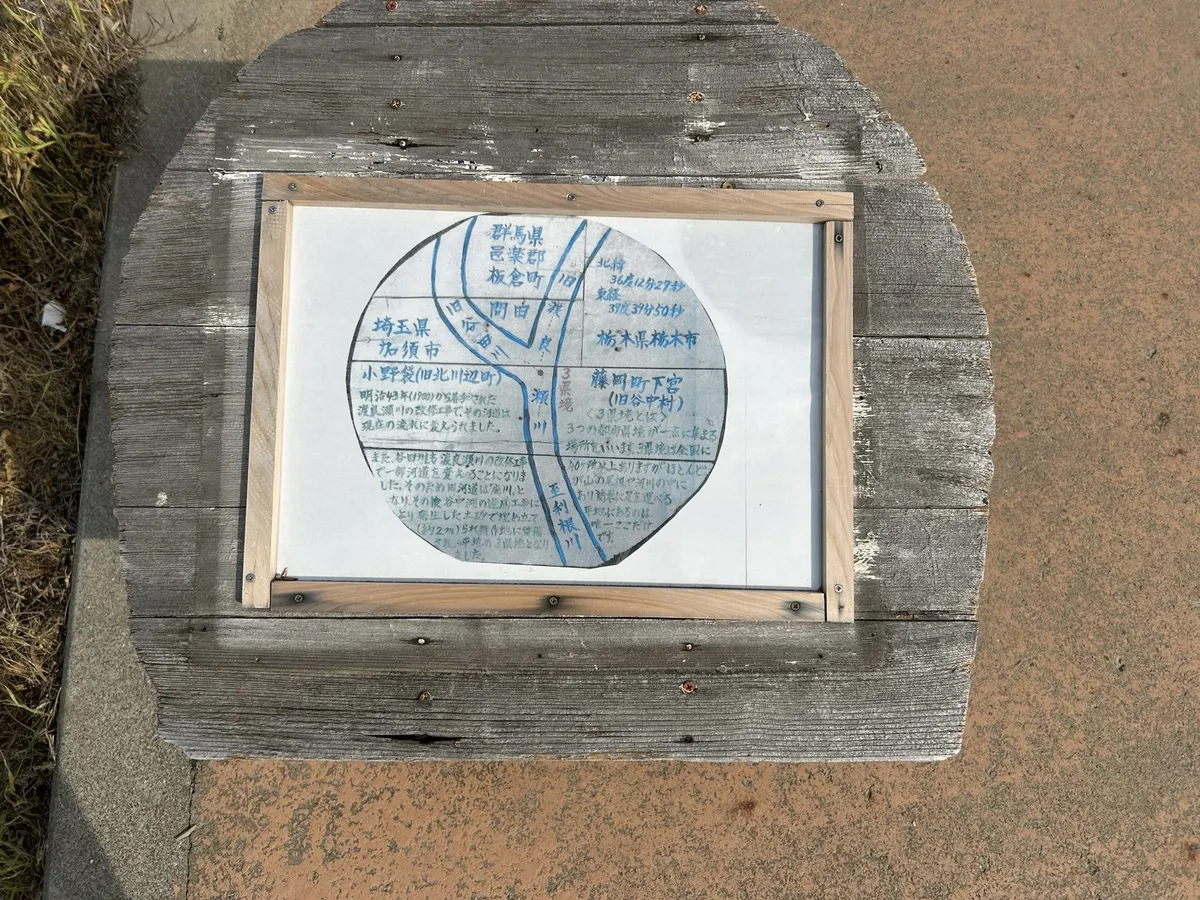 群馬県
邑楽郡
板倉町
間田
旧谷田川
旧渡良瀬川
北緯
36度12分27秒
東経
39度39分50秒
埼玉県
加須市
栃木県栃木市
小野袋(旧北川辺町)
明治43年(1900)から着手された
渡良瀬川の改修工事で、その河道は
現在の流れに変えられました。
3県境
藤岡町下宮
(旧谷中村)
<3県境とは>
3つの都府県境が一点に集まる
場所をいいます。3県境は全国に
40か所以上ありますがほとんど
が山の尾根や河川の中に
あり簡単に足を運べる
平地にあるのは
唯一ここだけ
です
また、谷田川も渡良瀬川の改修工事
で一部河道を変えることになりま
した。そのため旧河道は「廃川」と
なり、その後谷中湖の造成工事に
より発生した土砂で埋め立て
(約2m)られ耕作地に
され 平地の3県境となり
ました
至利根川